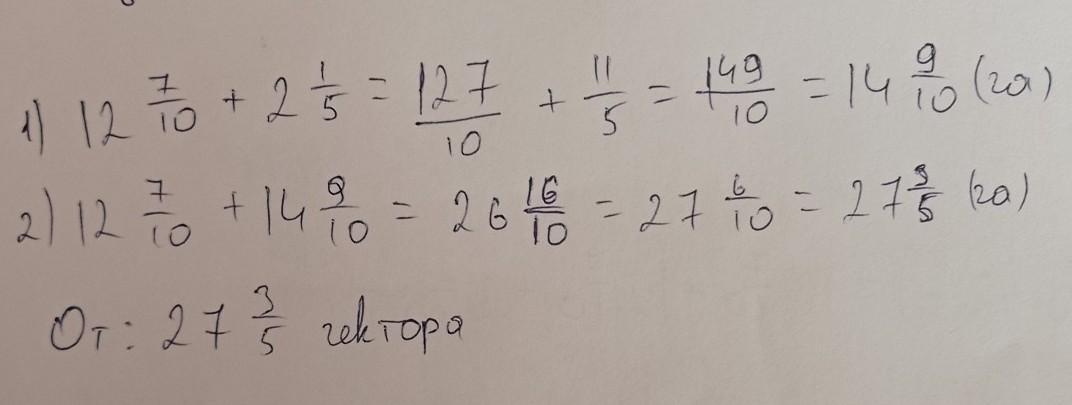 1) 12 7/10 + 2 1/5 = 127/10 + 11/5 = 149/10 = 14 9/10 (га)
2) 12 7/10 + 14 9/10 = 26 16/10 = 27 6/10 = 27 3/5 (га)
От: 27 3/5 гектора